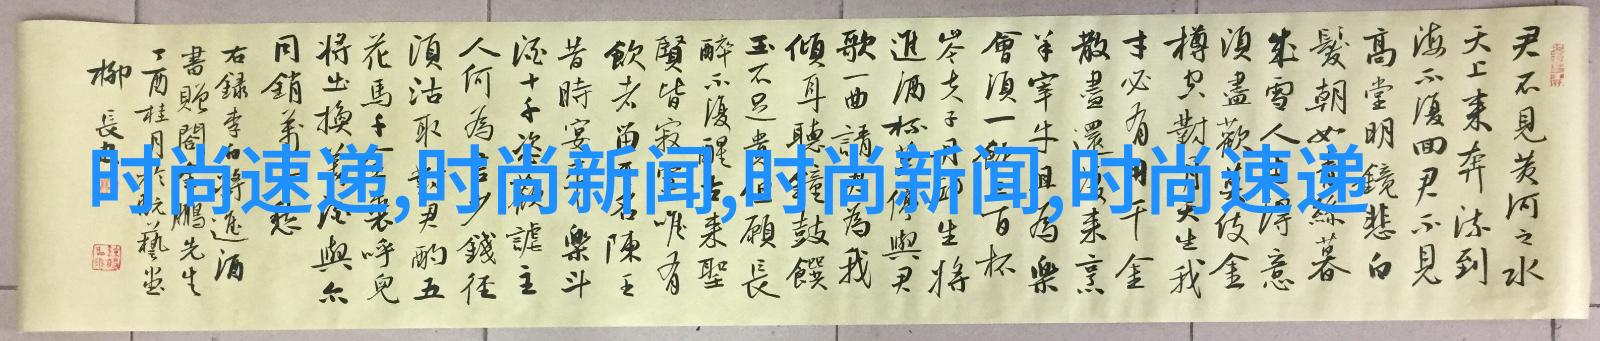 君不見黃河之水
天上來奔流到
海不復回君不見
高堂明鏡悲白
髮朝如青絲暮
成雪人生得意
須盡歡莫使金
樽空對月天生我
才必有用千金
散盡還復來烹
羊宰牛且為樂
會須一飲三百杯
岑夫子丹丘生將
進酒杯莫停與君
歌一曲請君為我
傾耳聽鐘鼓饌
玉不足貴但願長
醉不復醒古來聖
賢皆寂寞唯有
飲者留其名陳王
昔時宴平樂斗
酒十千恣歡謔主
人何為言少錢徑
須沽取對君酌五
花馬千金裘呼兒
將出換美酒與尒
同銷萬古愁
右録李白將進酒
書贈閣鵬先生
丁酉桂月於皖藝堂
柳長忠
时尚速递,时尚新闻,时尚新闻,时尚速递